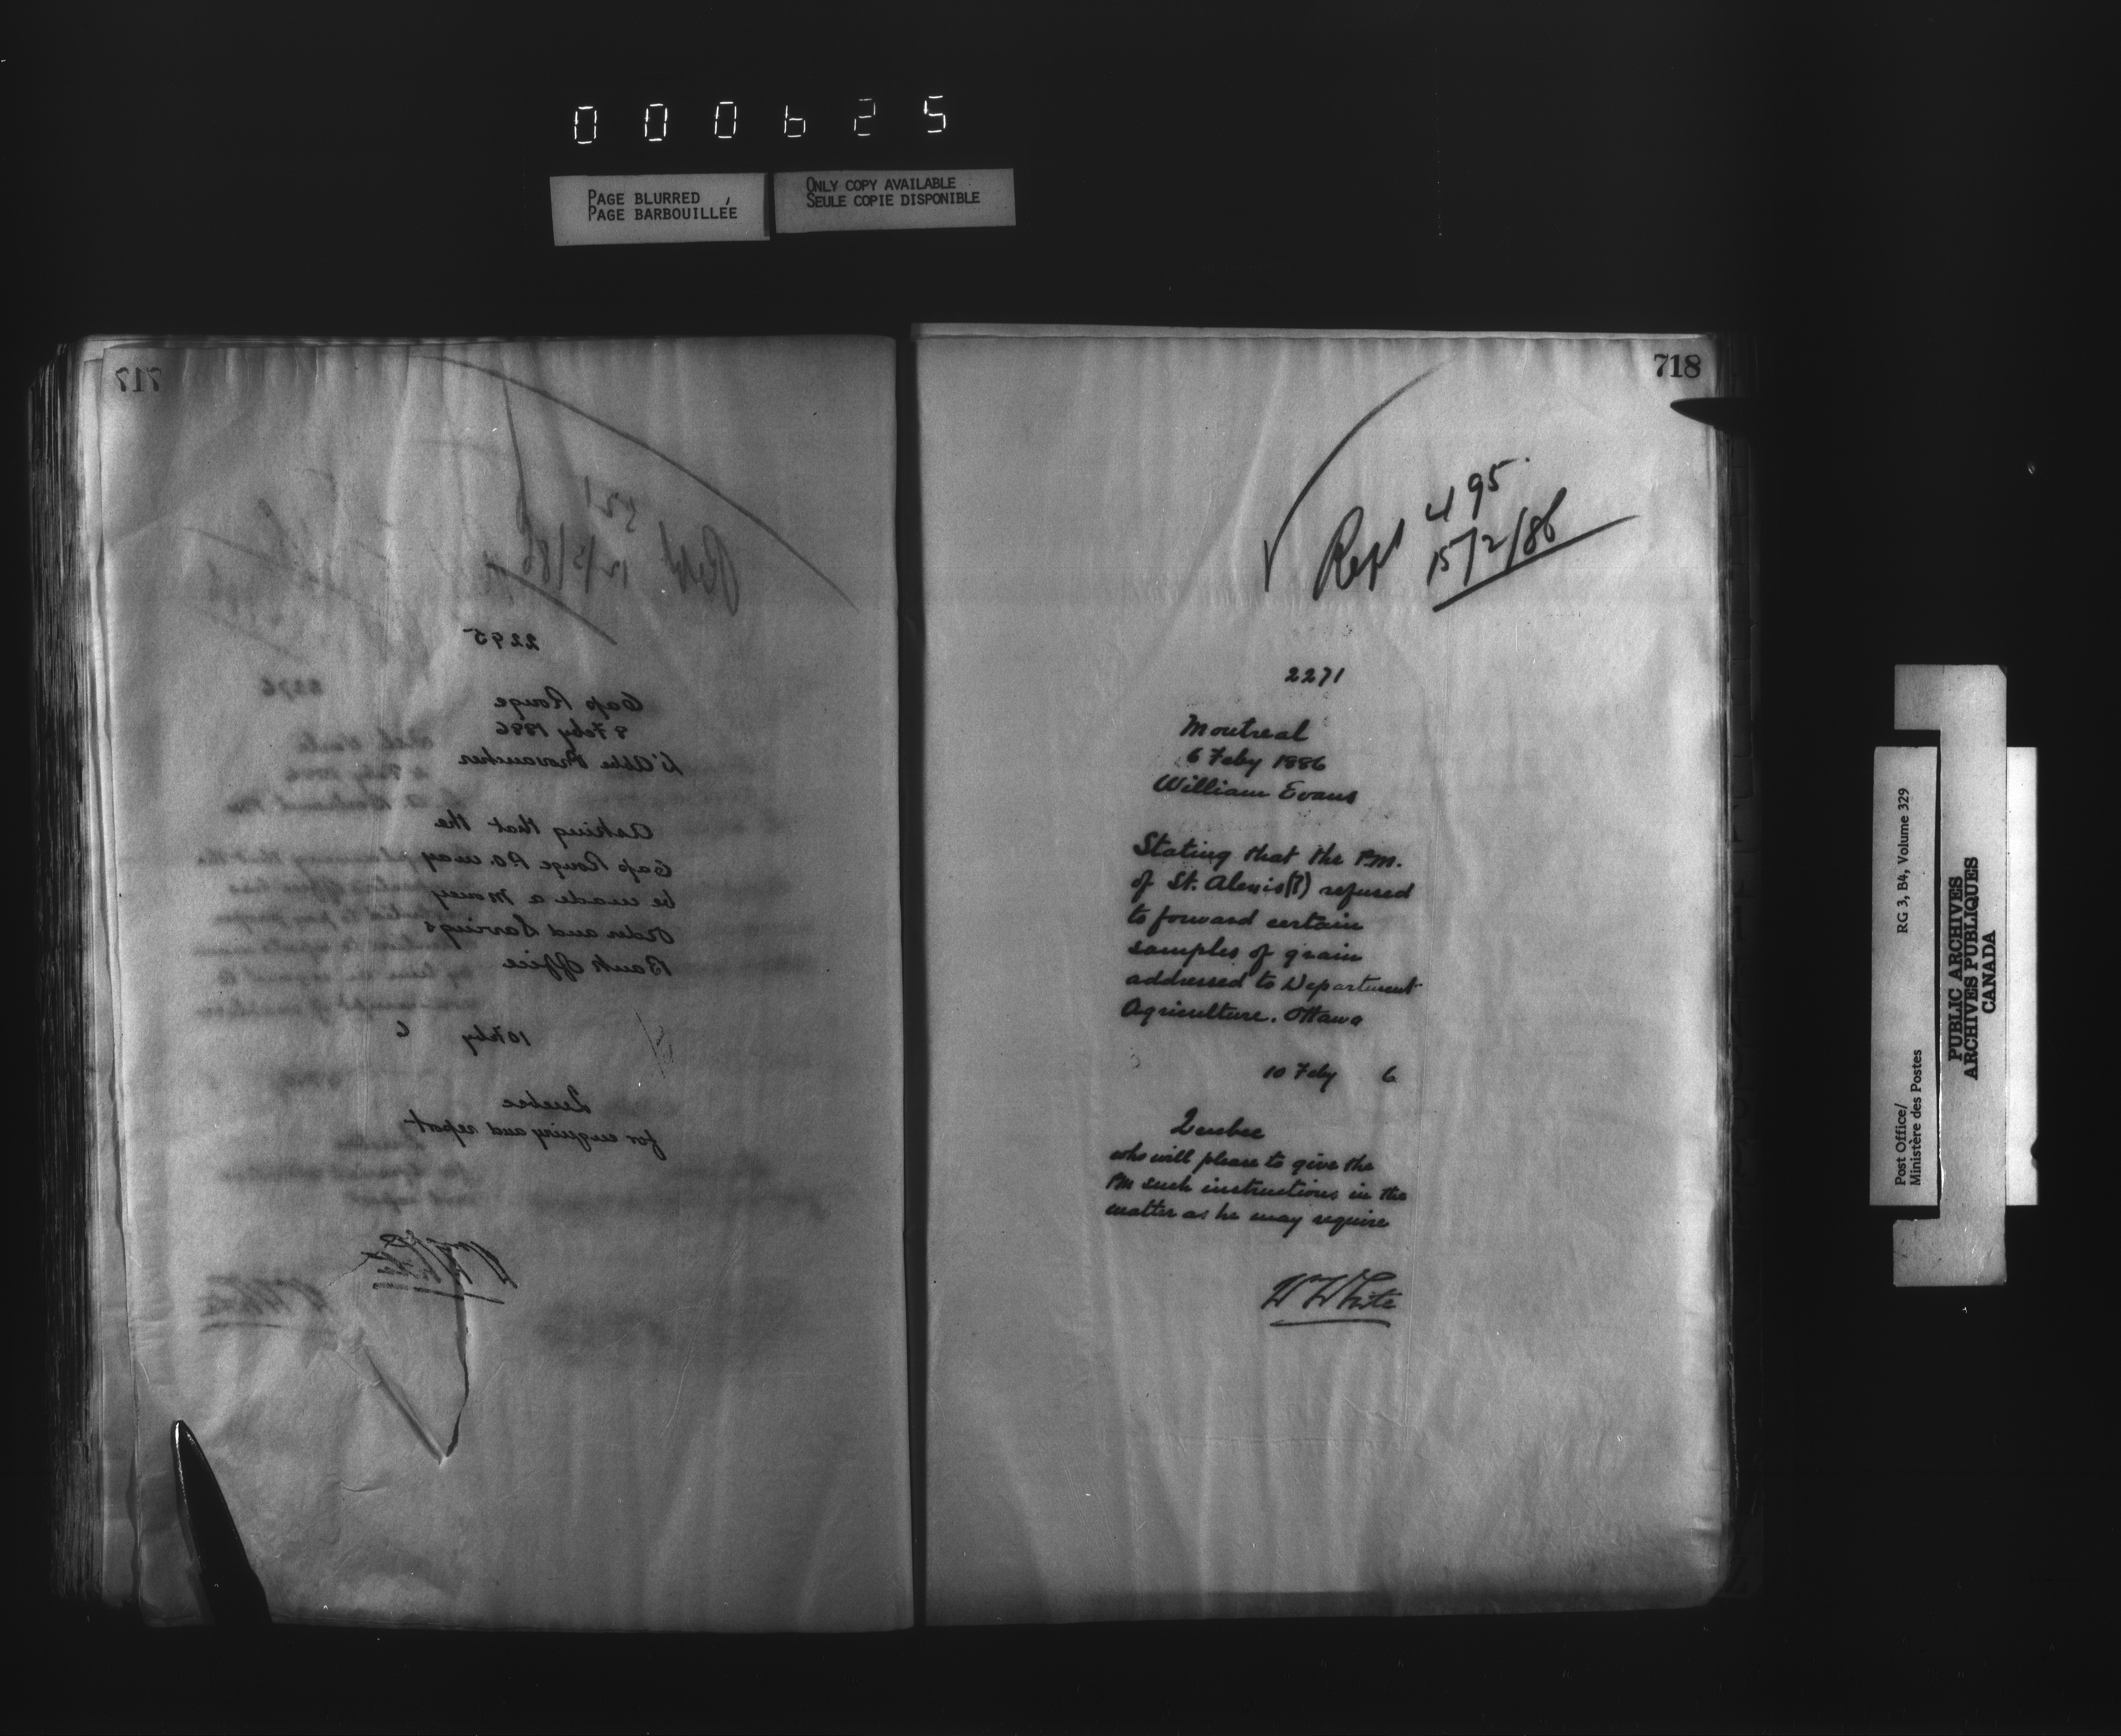 000625
PAGE BLURRED
PAGE BARBOUILLÉE
ONLY COPY AVAILABLE
SEULE COPIE DISPONIBLE
717
521
Rept 12/2/86
2295
Cap Rouge
8 Feby 1886
L'Abbé Provancher
Asking that the
Cap Rouge P.O. may
be made a Money
Order and Savings
Bank Office
10 Feby 6
Quebec
for enquiry and report
W White
718
495
Rept 15/2/86
2271
Montreal
6 Feby 1886
William Evans
Stating that the P.M.
of St. Alexis(?) refused
to forward certain
samples of grain
addressed to Department
Agriculture. Ottawa
10 Feby 6
Quebec
who will please to give the
PM such instructions in the
matter as he may require
W White
Post Office/ RG 3, B4, Volume 329
Ministère des Postes
PUBLIC ARCHIVES
ARCHIVES PUBLIQUES
CANADA